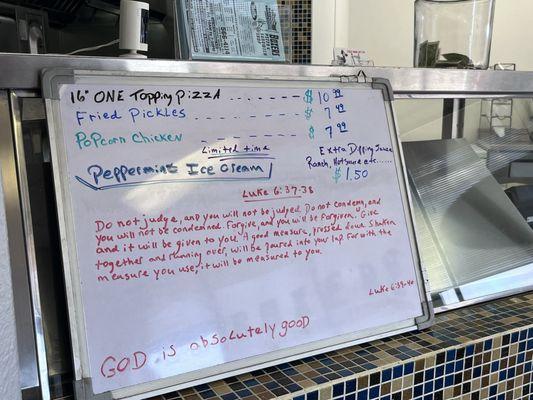 16" ONE Topping Pizza $ 10 99
Fried Pickles $ 7 49
Popcorn Chicken $ 7 49
Limited time
Peppermint Ice Cream
Extra Dipping Sauce
Ranch, Hot sauce etc......
$ 1.50
Luke 6:37-38
Do not judge, and you will not be judged. Do not condemn, and
you will not be condemned. Forgive, and you will be forgiven. Give
and it will be given to you. A good measure, pressed down, shaken
together and running over, will be poured into your lap. For with the
measure you use, it will be measured to you.
Luke 6:39-40
GOD is absolutely good